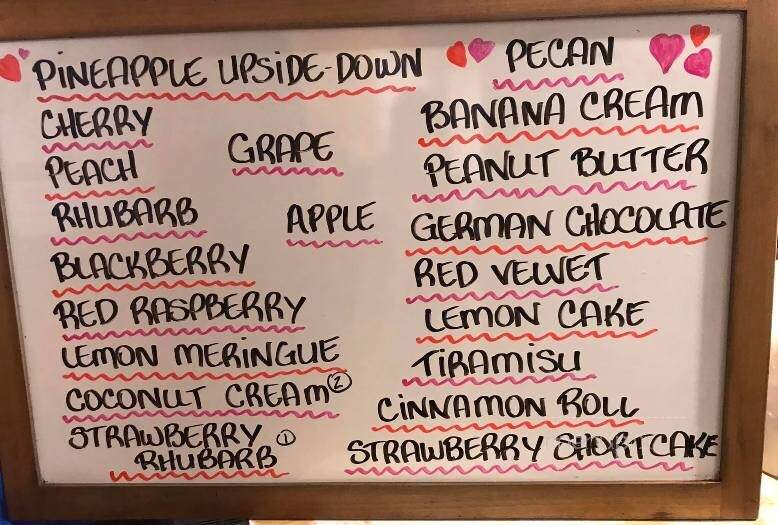 PINEAPPLE UPSIDE-DOWN
CHERRY
PEACH
GRAPE
RHUBARB
APPLE
BLACKBERRY
RED RASPBERRY
LEMON MERINGUE
COCONUT CREAM 2
STRAWBERRY 1
RHUBARB
PECAN
BANANA CREAM
PEANUT BUTTER
GERMAN CHOCOLATE
RED VELVET
LEMON CAKE
TIRAMISU
CINNAMON ROLL
STRAWBERRY SHORTCAKE